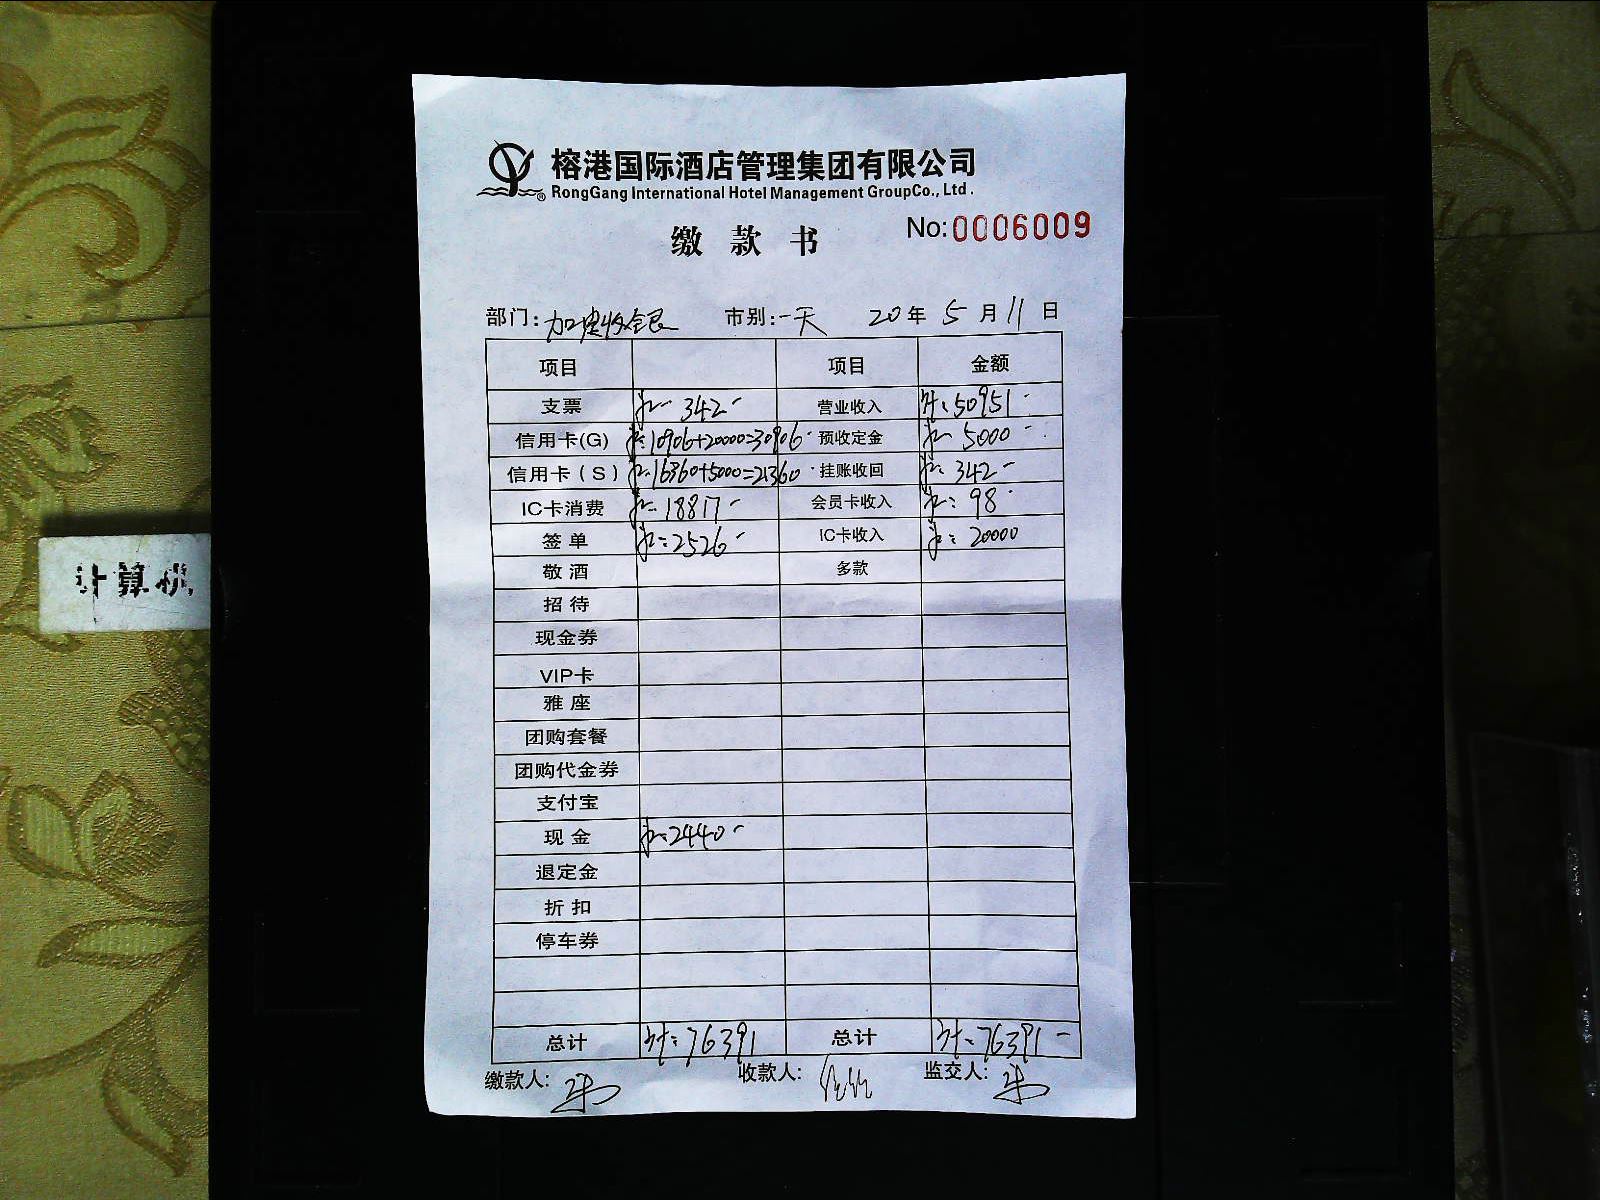 榕港国际酒店管理集团有限公司
RongGang International Hotel Management GroupCo., Ltd.
缴款书 No:0006009
部门: 收银 市别:一天 20年5月11日
项目 项目 金额
支票 342- 营业收入 计:50951-
信用卡(G) 10906+20000=30906- 预收定金 5000-
信用卡(S) 16360+5000=21360- 挂账收回 342-
IC卡消费 18817- 会员卡收入 98-
签单 2526- IC卡收入 20000
敬酒 多款
招待
现金券
VIP卡
雅座
团购套餐
团购代金券
支付宝
现金 2440-
退定金
折扣
停车券
总计 计:76391 总计 计:76391-
缴款人: 收款人: 监交人:
计算机